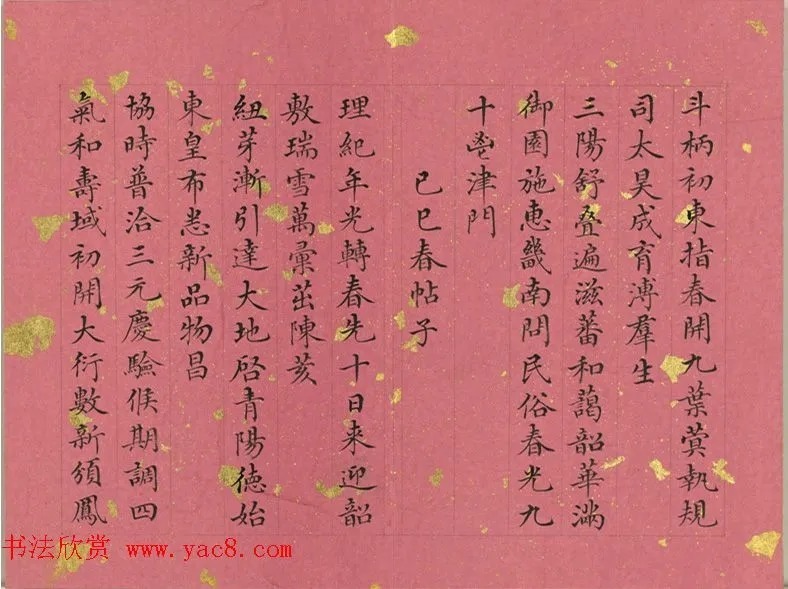 斗柄初東指春開九葉蓂執規
司太昊成育溥羣生
三陽舒叠遍滋蕃和藹韶華滿
御園施惠畿南問民俗春光九
十邕津門
己巳春帖子
理紀年光轉春先十日來迎韶
敷瑞雪萬彙茁陳荄
紐芽漸引達大地啓青陽德始
東皇布恚新品物昌
協時普洽三元慶驗候期調四
氣和壽域初開大衍數新頒鳳
书法欣赏 www.yac8.com